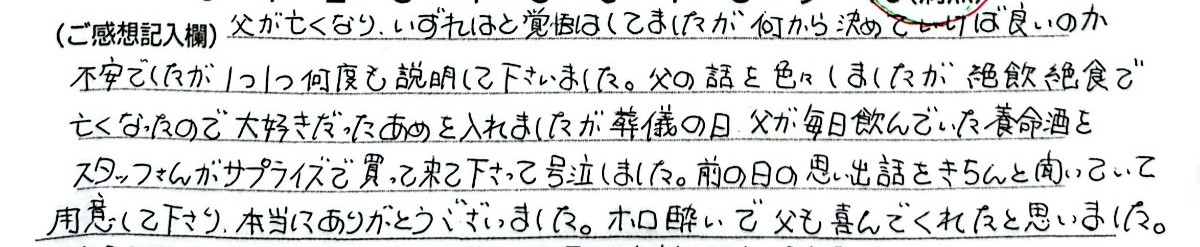 (ご感想記入欄) 父が亡くなり、いずれはと覚悟はしてましたが何から決めていけば良いのか
不安でしたが1つ1つ何度も説明して下さいました。父の話を色々しましたが絶飲絶食で
亡くなったので大好きだったあめを入れましたが葬儀の日、父が毎日飲んでいた養命酒を
スタッフさんがサプライズで買って来て下さって号泣しました。前の日の思い出話をきちんと聞いていて
用意して下さり、本当にありがとうございました。ホロ酔いで父も喜んでくれたと思いました。